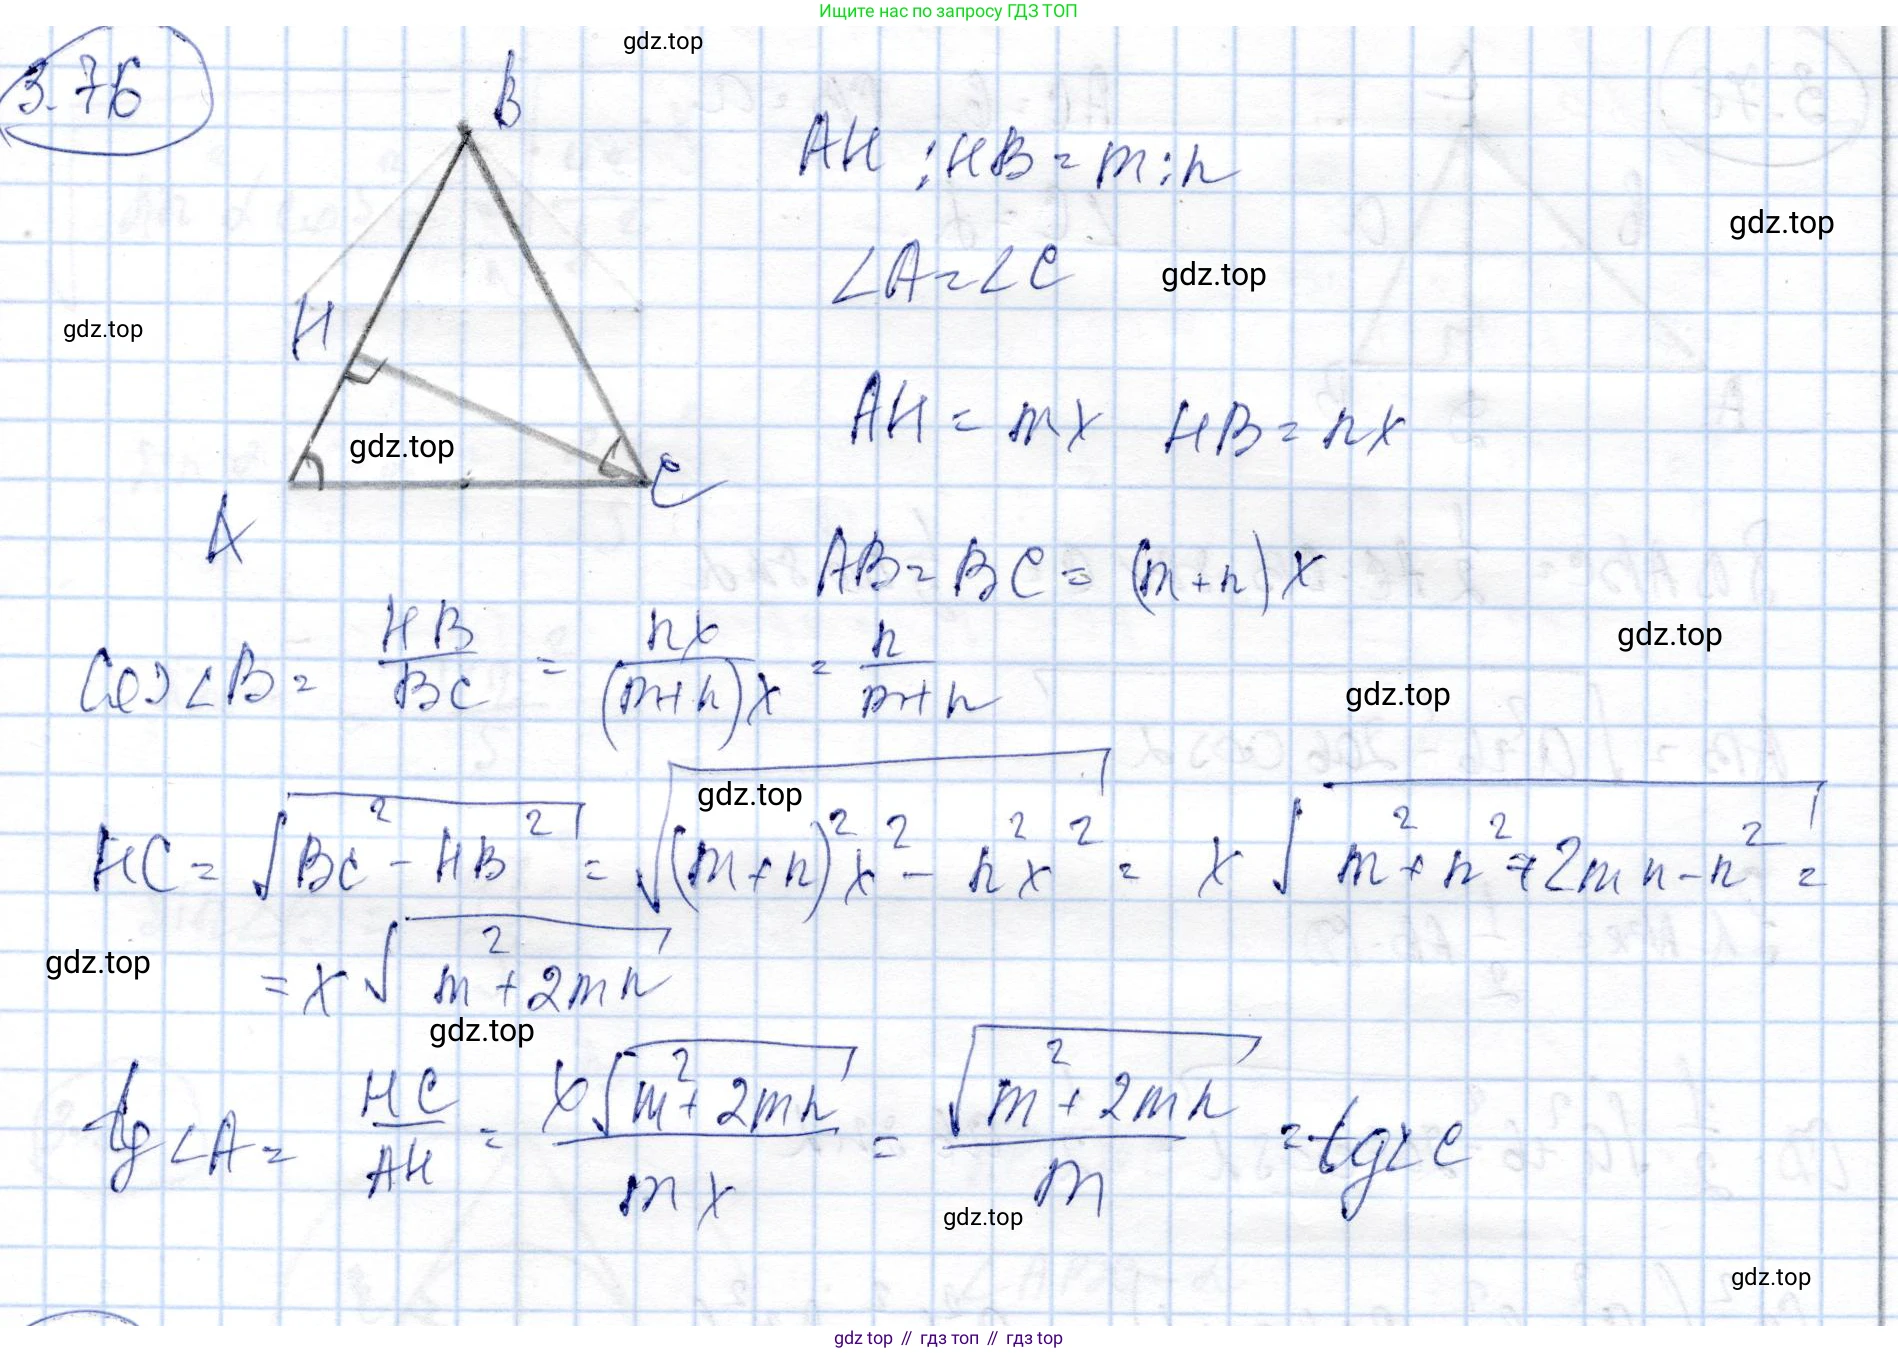 Ищите нас по запросу ГДЗ ТОП
gdz.top
3.76
B
AH : HB = m : n
gdz.top
∠A = ∠C
gdz.top
H
gdz.top
AH = mx HB = nx
gdz.top
C
A
AB = BC = (m+n)x
gdz.top
Cos∠B = HB/BC = nx/(m+n)x = n/m+n
gdz.top
gdz.top
HC = √(BC² - HB²) = √((m+n)²x² - n²x²) = x√(m² + n² + 2mn - n²) =
gdz.top
= x√(m² + 2mn)
gdz.top
tg∠A = HC/AH = x√(m² + 2mn)/mx = √(m² + 2mn)/m = tg∠C
gdz.top
gdz.top
gdz top // гдз топ // гдз top